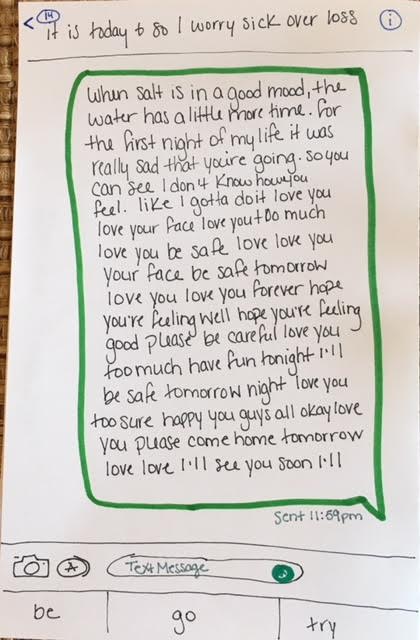 14
it is today to so I worry sick over loss
i
When salt is in a good mood, the
water has a little more time. For
the first night of my life it was
really sad that you're going. So you
can see I don't know how you
feel. like I gotta do it love you
love your face love you too much
love you be safe love love you
your face be safe tomorrow
love you love you forever hope
you're feeling well hope you're feeling
good please be careful love you
too much have fun tonight I'll
be safe tomorrow night love you
too sure happy you guys all okay love
you please come home tomorrow
love love I'll see you soon I'll
Sent 11:59pm
A
Text Message
be
go
try